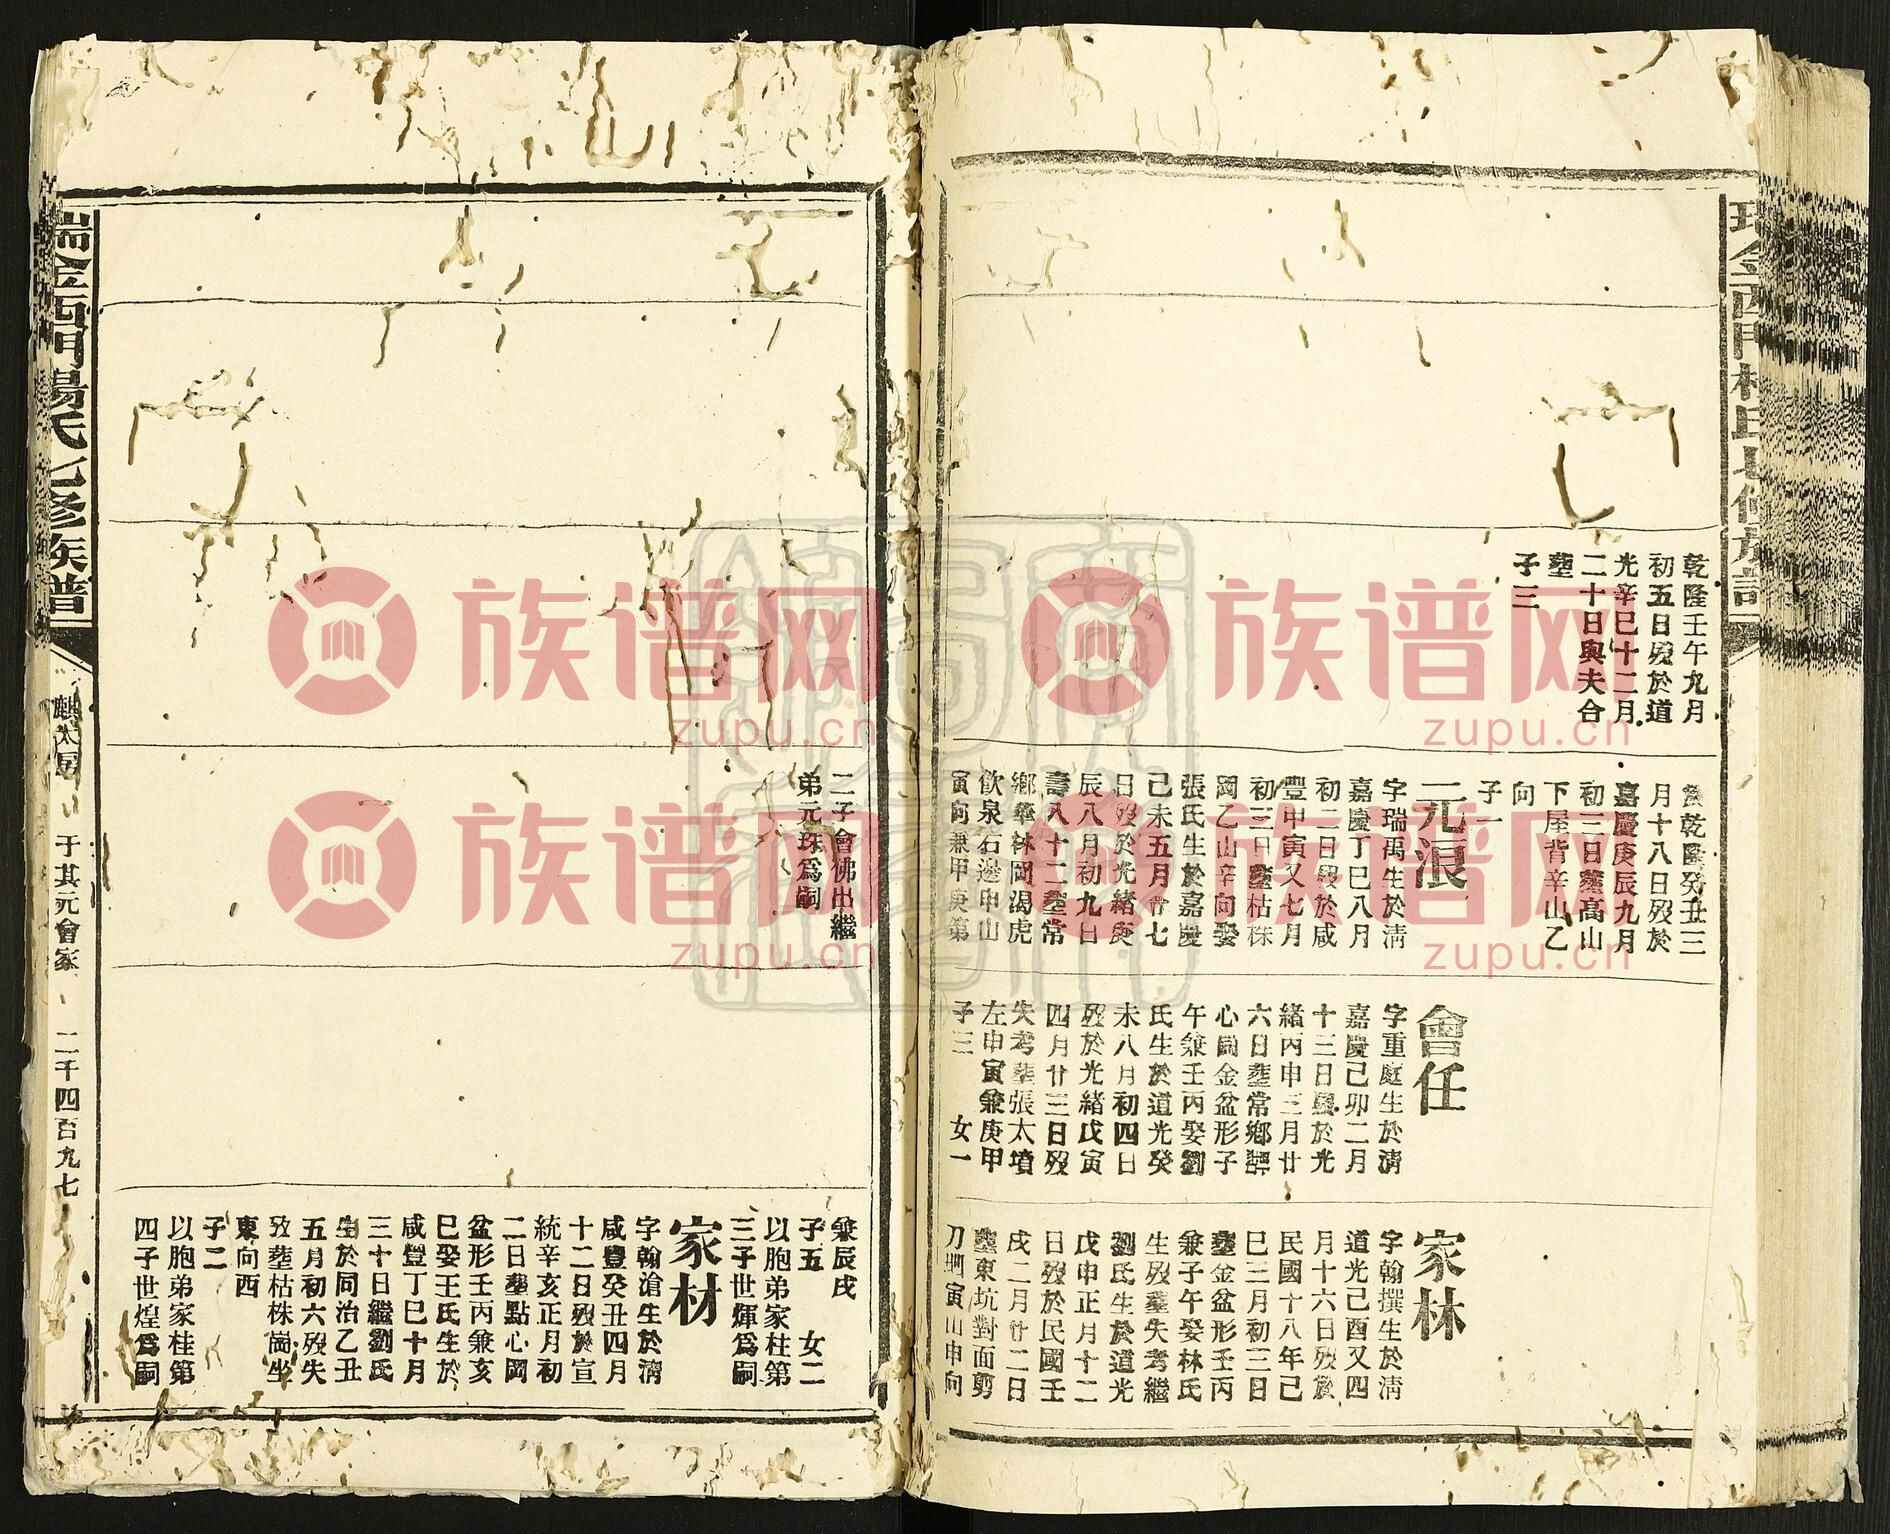 乾隆壬午九月
初五日歿於道
光辛巳十二月
二十日與夫合
塟
子三
乾隆癸丑三
月十八日歿於
嘉慶庚辰九月
初三日塟高山
下屋背辛山乙
向
子一
元浪
字瑞禹生於清
嘉慶丁巳八月
初二日歿於咸
豐甲寅又七月
初三日塟枯株
岡乙山辛向娶
張氏生於嘉慶
己未五月廿七
日歿於光緒庚
辰八月初九日
壽八十二塟常
鄉華林岡渴虎
飲泉石邊申山
寅向兼甲庚第
會任
字重庭生於清
嘉慶己卯二月
十三日歿於光
緒丙申三月廿
六日塟常鄉
心岡金盆形子
午兼壬丙娶劉
氏生於道光癸
未八月初四日
歿於光緒戊寅
四月廿三日歿
失考塟張太墳
左申寅兼庚甲
子三 女一
家林
字翰撰生於清
道光己酉又四
月十六日歿於
民國十八年己
巳三月初三日
塟金盆形壬丙
兼子午娶林氏
生歿塟失考繼
劉氏生於道光
戊申正月十二
日歿於民國壬
戌二月廿二日
塟東坑對面剪
刀 寅山申向
二子會佛出繼
弟元珠爲嗣
兼辰戌
子五 女二
以胞弟家桂第
三子世輝爲嗣
家材
字翰滄生於清
咸豐癸丑四月
十二日歿於宣
統辛亥正月初
二日塟點心岡
盆形壬丙兼亥
巳娶王氏生於
咸豐丁巳十月
三十日繼劉氏
生於同治乙丑
五月初六歿失
攷塟枯株崗坐
東向西
子二
以胞弟家桂第
四子世煌爲嗣
瑞金西門楊氏七修族譜
麒太房
于其元會家
二千四百九七
族谱网
zupu.cn
族谱网
zupu.cn
族谱网
zupu.cn
族谱网
zupu.cn